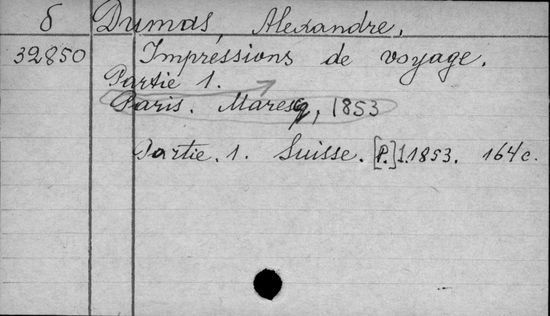 б Dumas, Alexandre.
32850 Impressions de voyage.
Partie 1.
Paris. Maresq, 1853
Partie. 1. Suisse. [P.] 1.1853. 164 c.